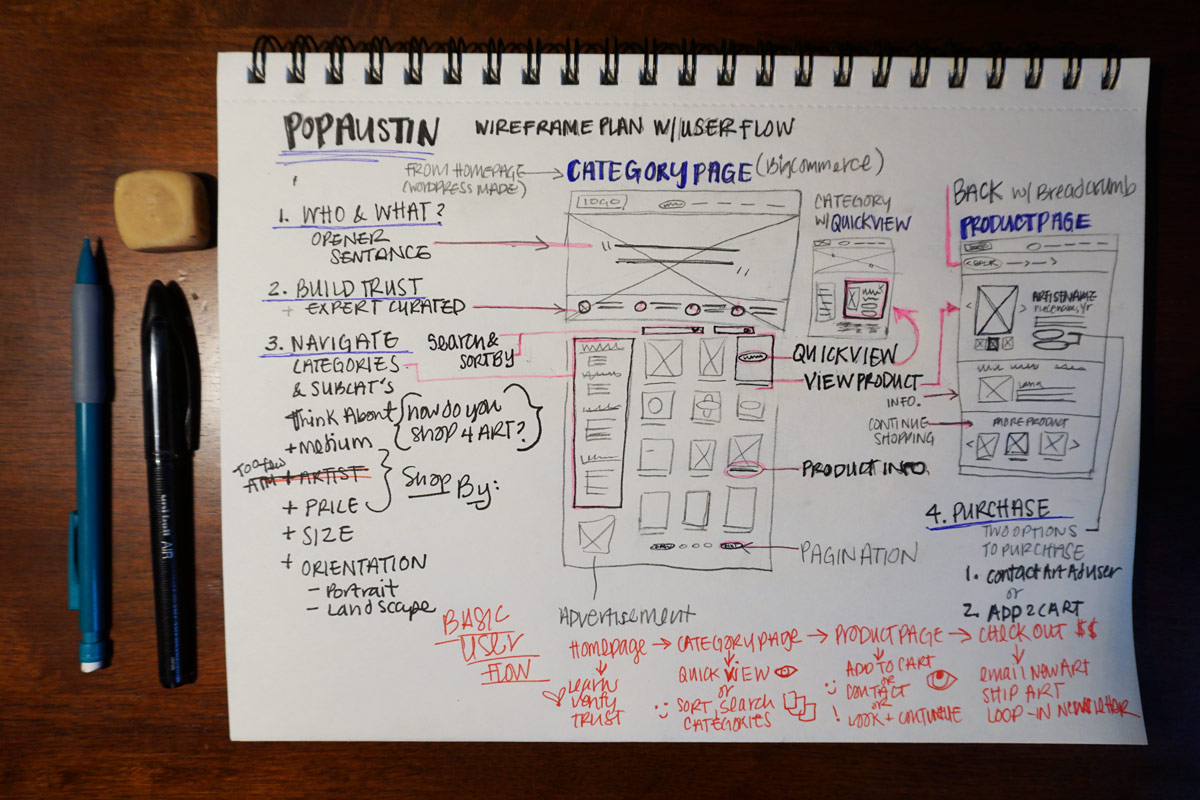 POPAUSTIN
WIREFRAME PLAN W/ USER FLOW
FROM HOMEPAGE
(WORDPRESS MADE)
CATEGORY PAGE (BigCommerce)
1. WHO & WHAT?
OPENER
SENTANCE
2. BUILD TRUST
+ EXPERT CURATED
3. NAVIGATE
CATEGORIES
& SUBCAT'S
Think About
how do you
shop 4 ART?
+ medium
TOO few
ATM + ARTIST
Shop By:
+ PRICE
+ SIZE
+ ORIENTATION
- Portrait
- Landscape
SEARCH &
SORT BY
LOGO
CATEGORY
W/ QUICKVIEW
BACK w/ Breadcrumb
PRODUCT PAGE
LOGO
BACK
ARTIST NAME
MORE PRODUCT
QUICKVIEW
VIEW PRODUCT
INFO.
CONTINUE
SHOPPING
PRODUCT INFO.
PAGINATION
Advertisement
4. PURCHASE
TWO OPTIONS
TO PURCHASE
1. contact Art Adviser
or
2. ADD 2 CART
BASIC
USER
FLOW
Homepage → CATEGORY PAGE → PRODUCT PAGE → CHECK OUT $$
Learn
Verify
TRUST
QUICK VIEW
or
SORT, Search
CATEGORIES
ADD TO CART
or
CONTACT
or
! LOOK + CONTINUE
email NOW ART
SHIP ART
LOOP-IN Newsletter
uniball AIR